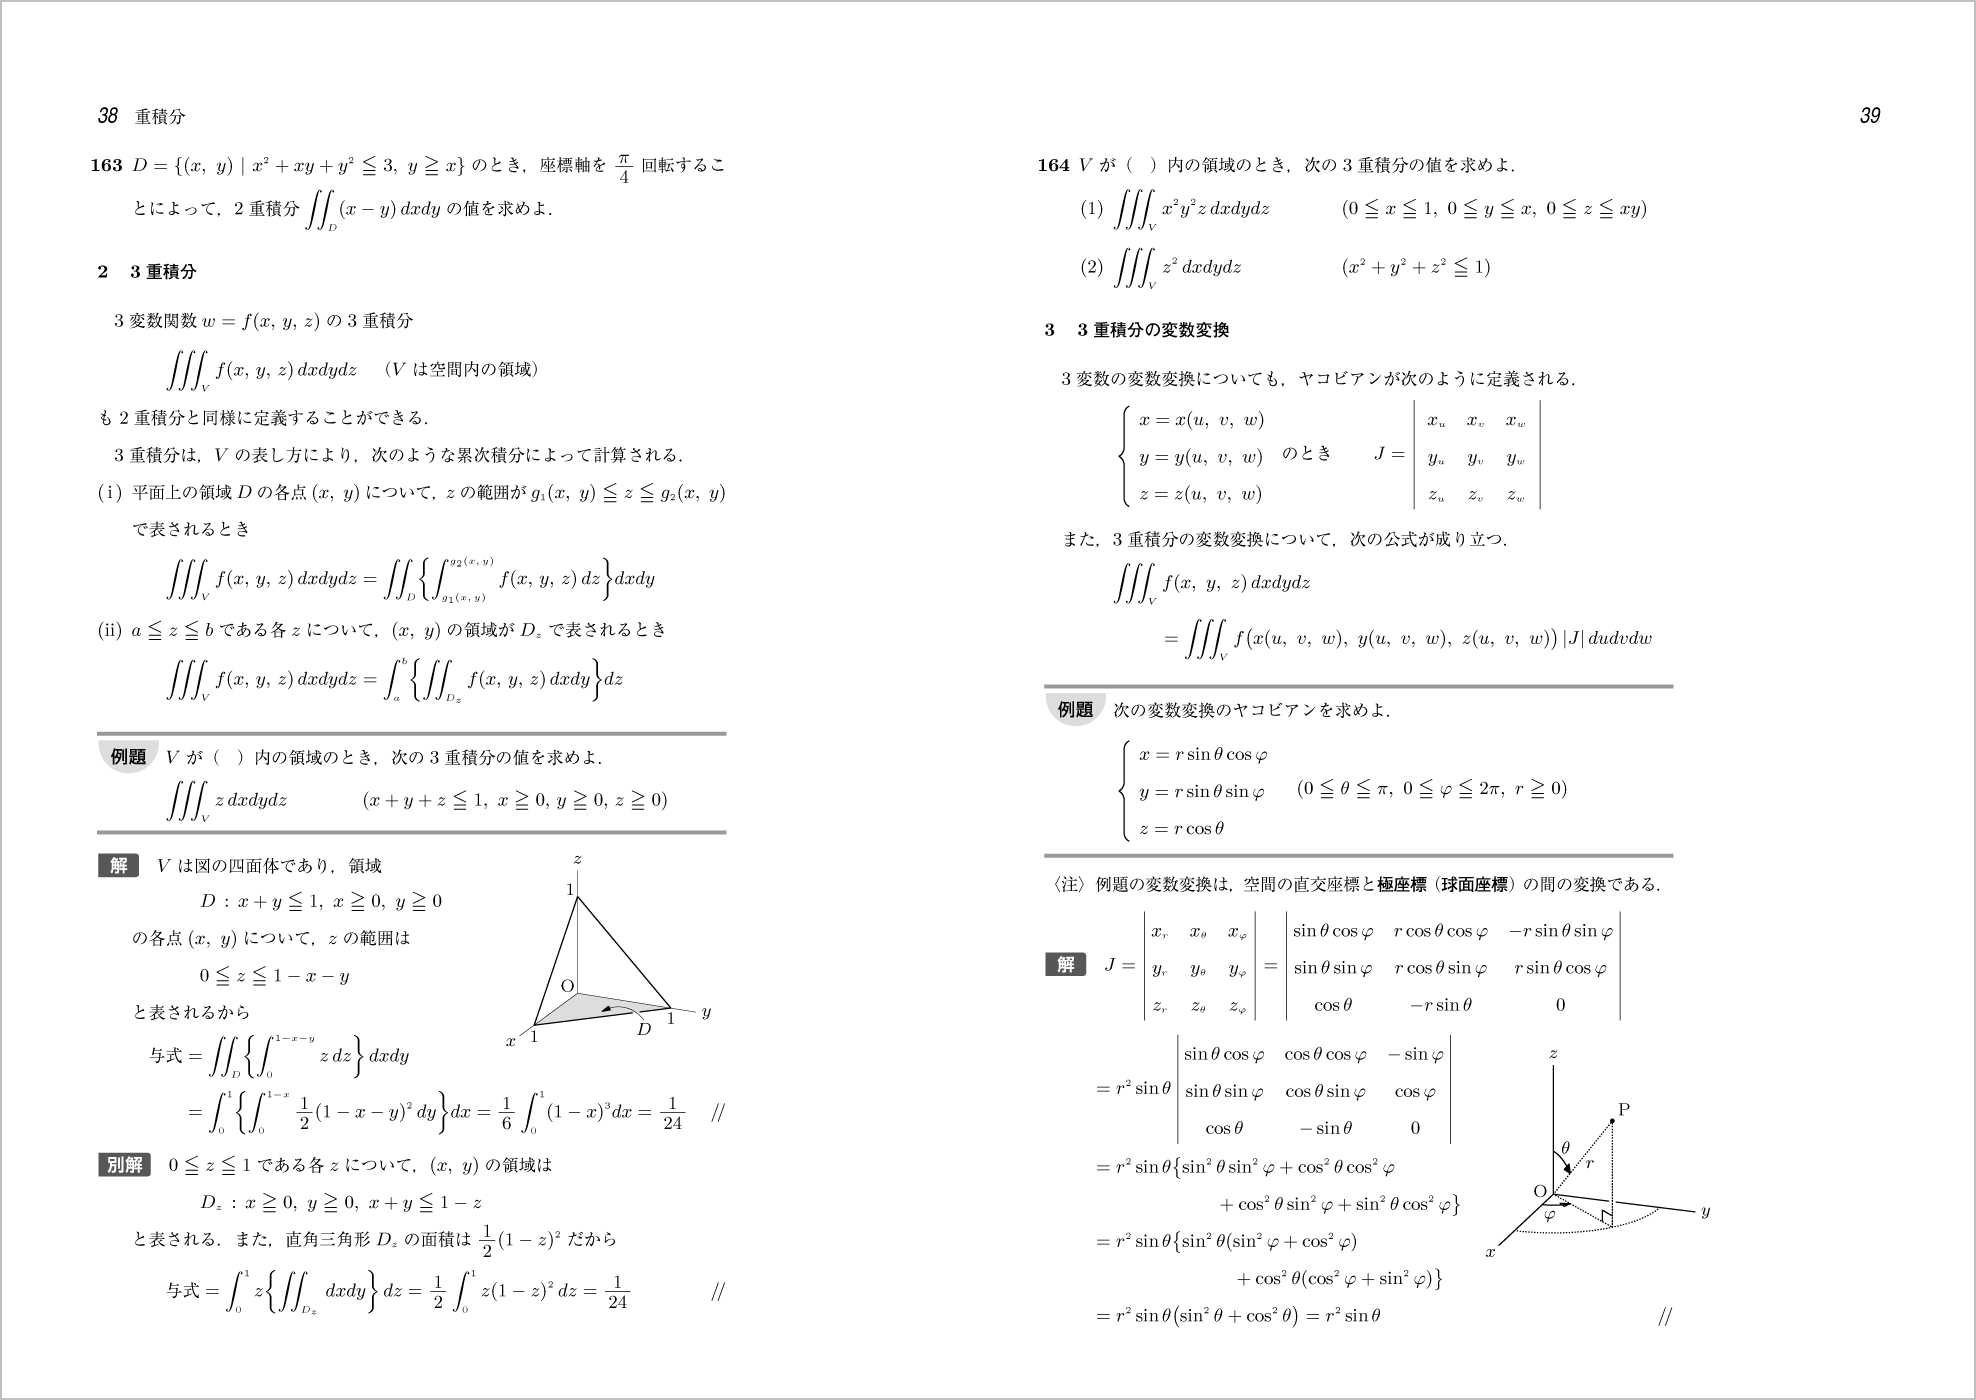 38 重積分
163 D = {(x, y) | x² + xy + y² ≦ 3, y ≧ x} のとき，座標軸を π/4 回転するこ
とによって，2 重積分 ∬_D (x − y) dxdy の値を求めよ．
2 3 重積分
3 変数関数 w = f(x, y, z) の 3 重積分
∭_V f(x, y, z) dxdydz （V は空間内の領域）
も 2 重積分と同様に定義することができる．
3 重積分は，V の表し方により，次のような累次積分によって計算される．
(i) 平面上の領域 D の各点 (x, y) について，z の範囲が g₁(x, y) ≦ z ≦ g₂(x, y)
で表されるとき
∭_V f(x, y, z) dxdydz = ∬_D {∫_{g₁(x, y)}^{g₂(x, y)} f(x, y, z) dz} dxdy
(ii) a ≦ z ≦ b である各 z について，(x, y) の領域が D_z で表されるとき
∭_V f(x, y, z) dxdydz = ∫_a^b {∬_{D_z} f(x, y, z) dxdy} dz
例題 V が（ ）内の領域のとき，次の 3 重積分の値を求めよ．
∭_V z dxdydz (x + y + z ≦ 1, x ≧ 0, y ≧ 0, z ≧ 0)
解 V は図の四面体であり，領域
D : x + y ≦ 1, x ≧ 0, y ≧ 0
の各点 (x, y) について，z の範囲は
0 ≦ z ≦ 1 − x − y
と表されるから
与式 = ∬_D {∫_0^{1−x−y} z dz} dxdy
= ∫_0^1 {∫_0^{1−x} 1/2 (1 − x − y)² dy} dx = 1/6 ∫_0^1 (1 − x)³ dx = 1/24 //
z
1
O
1
y
D
x
1
別解 0 ≦ z ≦ 1 である各 z について，(x, y) の領域は
D_z : x ≧ 0, y ≧ 0, x + y ≦ 1 − z
と表される．また，直角三角形 D_z の面積は 1/2 (1 − z)² だから
与式 = ∫_0^1 z {∬_{D_z} dxdy} dz = 1/2 ∫_0^1 z(1 − z)² dz = 1/24 //
39
164 V が（ ）内の領域のとき，次の 3 重積分の値を求めよ．
(1) ∭_V x²y²z dxdydz (0 ≦ x ≦ 1, 0 ≦ y ≦ x, 0 ≦ z ≦ xy)
(2) ∭_V z² dxdydz (x² + y² + z² ≦ 1)
3 3 重積分の変数変換
3 変数の変数変換についても，ヤコビアンが次のように定義される．
{ x = x(u, v, w) | x_u x_v x_w |
y = y(u, v, w) のとき J = | y_u y_v y_w |
z = z(u, v, w) | z_u z_v z_w |
また，3 重積分の変数変換について，次の公式が成り立つ．
∭_V f(x, y, z) dxdydz
= ∭_V f(x(u, v, w), y(u, v, w), z(u, v, w)) |J| dudvdw
例題 次の変数変換のヤコビアンを求めよ．
{ x = r sin θ cos φ
y = r sin θ sin φ (0 ≦ θ ≦ π, 0 ≦ φ ≦ 2π, r ≧ 0)
z = r cos θ
〈注〉例題の変数変換は，空間の直交座標と極座標（球面座標）の間の変換である．
| x_r x_θ x_φ | | sin θ cos φ r cos θ cos φ −r sin θ sin φ |
解 J = | y_r y_θ y_φ | = | sin θ sin φ r cos θ sin φ r sin θ cos φ |
| z_r z_θ z_φ | | cos θ −r sin θ 0 |
| sin θ cos φ cos θ cos φ − sin φ |
= r² sin θ | sin θ sin φ cos θ sin φ cos φ |
| cos θ − sin θ 0 |
= r² sin θ{sin² θ sin² φ + cos² θ cos² φ
+ cos² θ sin² φ + sin² θ cos² φ}
= r² sin θ{sin² θ(sin² φ + cos² φ)
+ cos² θ(cos² φ + sin² φ)}
= r² sin θ(sin² θ + cos² θ) = r² sin θ //
z
P
θ
r
O
φ
y
x